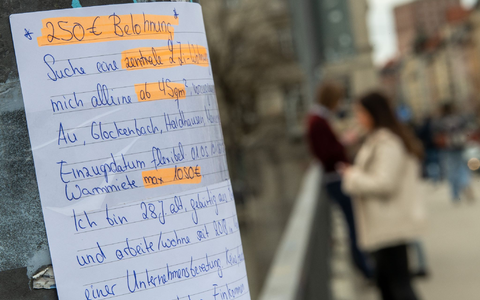 * 250€ Belohnung *
Suche eine zentrale 2 Zi-
mich alleine ab 45qm
Au, Glockenbach, Haidhausen
Einzugsdatum flexibel 01.05
Warmmiete max 1050€
Ich bin 28J alt, geburtig aus
und arbeite/wohne seit
einer Unternehmensberatung